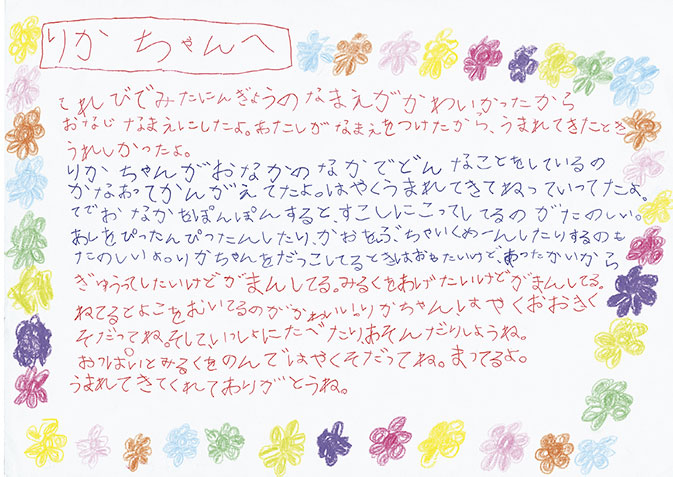 りか ちゃんへ
てれびでみたにんぎょうのなまえがかわいかったから
おなじなまえにしたよ。わたしがなまえをつけたから、うまれてきたとき
うれしかったよ。
りかちゃんがおなかのなかでどんなことをしているの
かなあってかんがえてたよ。はやくうまれてきてねっていってたよ。
てでおなかをぽんぽんすると、すこしにこってしてるのがたのしい。
あしをぴったんぴったんしたり、かおをぶちゃいくめーんしたりするのも
たのしいよ。りかちゃんをだっこしてるときはおもたいけど、あったかいから
ぎゅうってしたいけどがまんしてる。みるくをあげたいけどがまんしてる。
ねてるとよこをむいてるのがかわいい!!りかちゃんはやくおおきく
そだってね。そしていっしょにたべたりあそんだりしようね。
おっぱいとみるくをのんではやくそだってね。まってるよ。
うまれてきてくれてありがとうね。